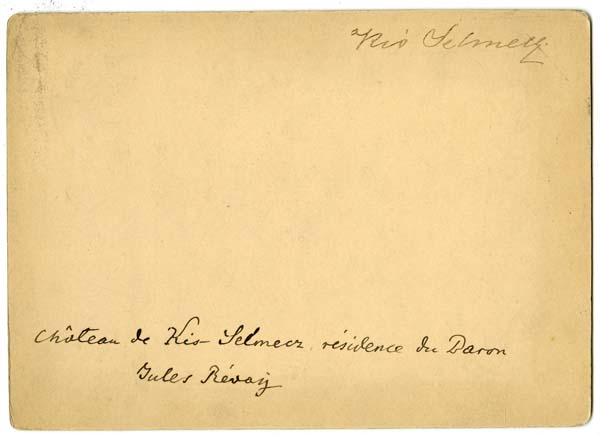 Kis Selmetz.
Château de Kis-Selmecz, résidence du Baron
Jules Révaÿ